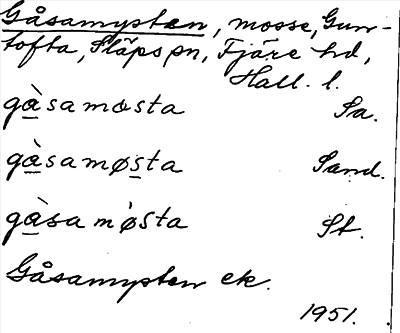 Gåsamypten, mosse, Gun-
tofta, Släps sn, Fjäre hd,
Hall. l.
gàsamøsta Sa.
gàsamøsta Sand.
gàsamøsta St.
Gåsamypten ek.
1951.